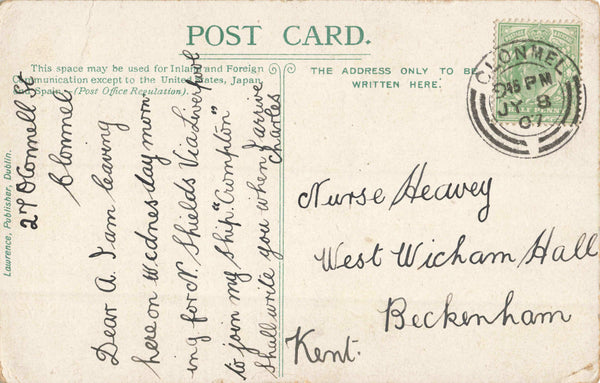 POST CARD.
This space may be used for Inland and Foreign
Communication except to the United States, Japan,
and Spain. (Post Office Regulation).
THE ADDRESS ONLY TO BE
WRITTEN HERE.
CLONMEL
PM
JY 8
07
Lawrence, Publisher, Dublin.
27 O'Connell St
Clonmel
Dear A. I am leaving
here on Wednesday morn
ing for N. Shields Via Liverpool
to join my ship "Crompton"
Shall write you when I arrive
Charles
Nurse Heavey
West Wicham Hall
Beckenham
Kent.